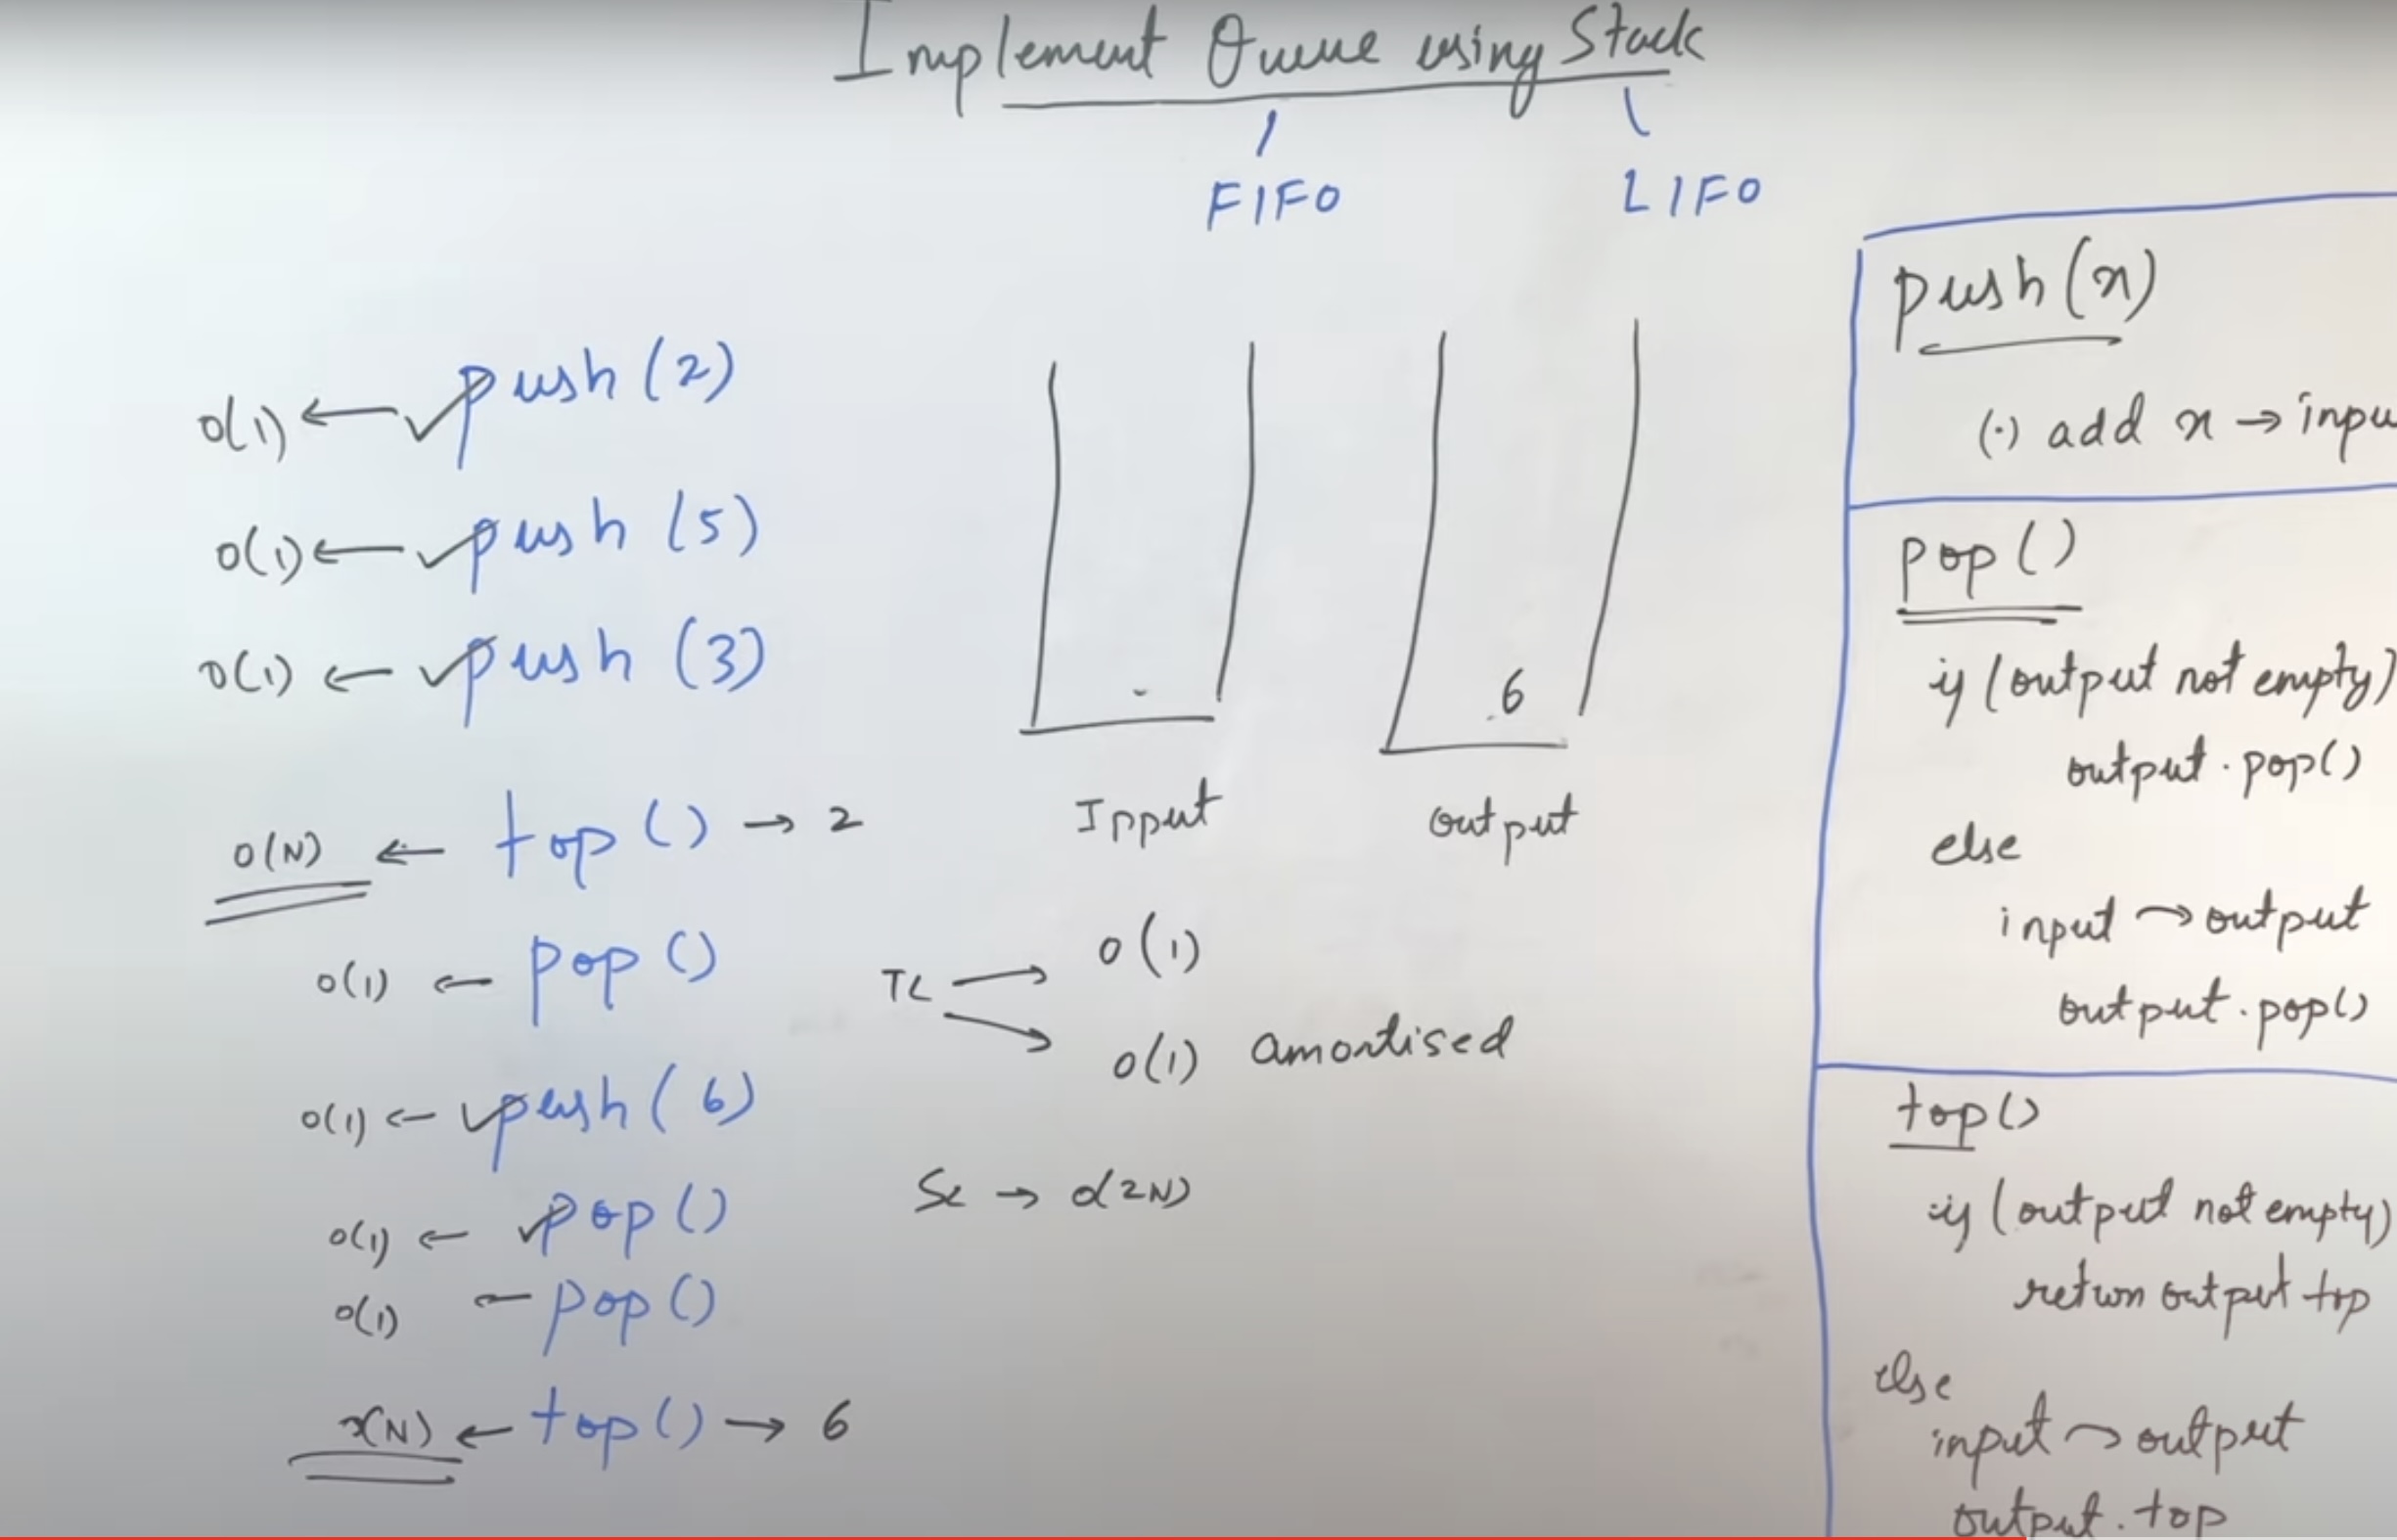 Implement Queue using Stack
FIFO
LIFO
O(1) ← ✓push(2)
O(1) ← ✓push(5)
O(1) ← ✓push(3)
O(N) ← top() → 2
O(1) ← pop()
O(1) ← ✓push(6)
O(1) ← ✓pop()
O(1) ← pop()
(N) ← top() → 6
6
Input
output
TC → O(1)
→ O(1) amortised
SC → O(2N)
push(x)
(·) add x → inpu
pop()
if (output not empty)
output.pop()
else
input → output
output.pop()
top()
if (output not empty)
return output top
else
input → output
output.top